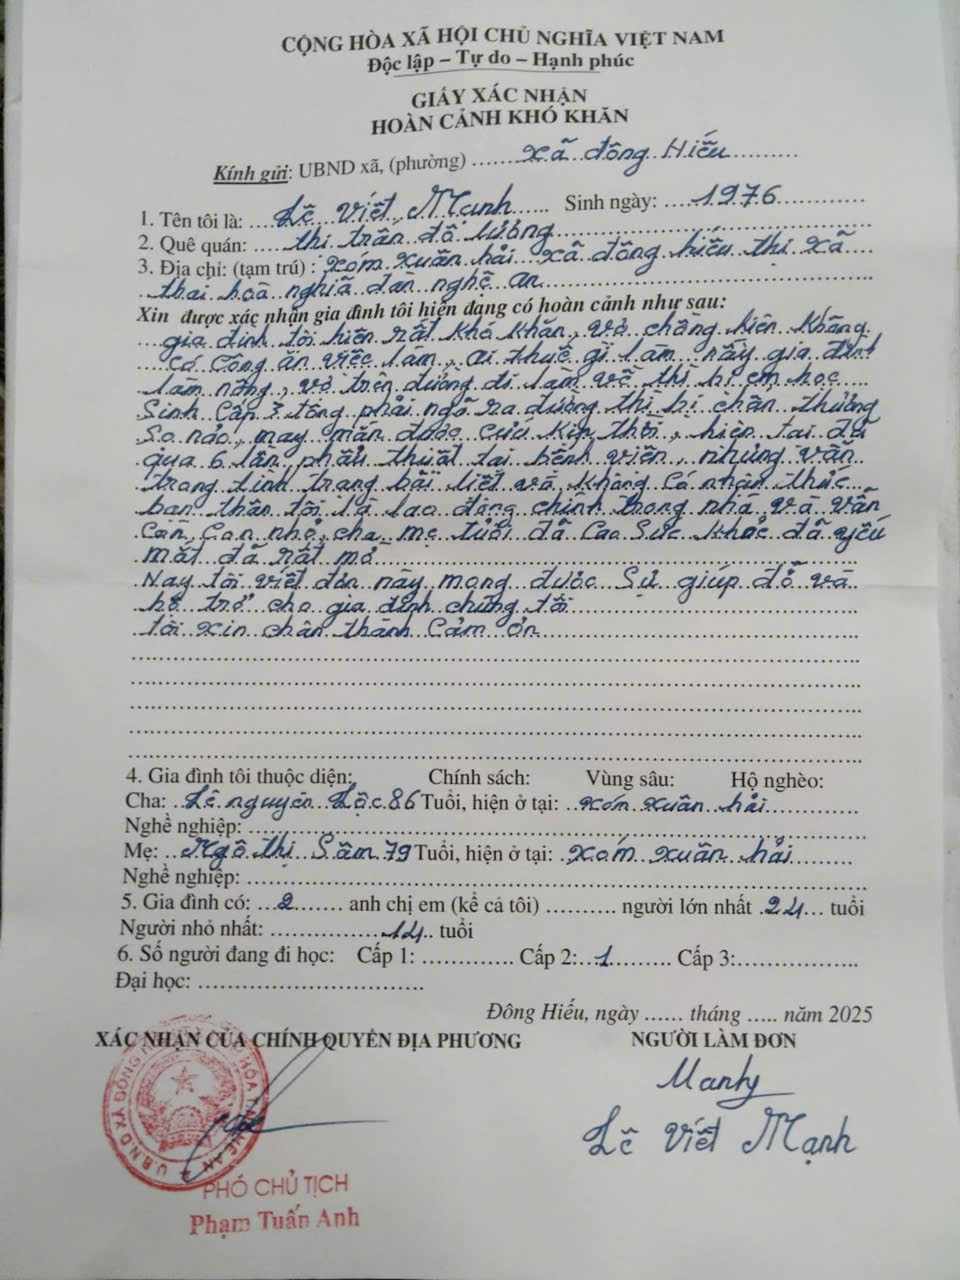 CỘNG HÒA XÃ HỘI CHỦ NGHĨA VIỆT NAM
Độc lập – Tự do – Hạnh phúc
GIẤY XÁC NHẬN
HOÀN CẢNH KHÓ KHĂN
Kính gửi: UBND xã, (phường) ....... xã đông Hiếu ..........
1. Tên tôi là: .... Lê Viết Mạnh ...... Sinh ngày: ..... 1976 ..........
2. Quê quán: ..... thị trấn đô lương ..........
3. Địa chỉ: (tạm trú) : xóm xuân hải xã đông hiếu thị xã
thai hoà nghĩa đàn nghệ an ..........
Xin được xác nhận gia đình tôi hiện đang có hoàn cảnh như sau:
gia đình tôi hiện rất khó khăn, vợ chồng hiên không
có công ăn việc làm, ai thuê gì làm nấy gia đình
làm nông, vợ trên đường đi làm về thì bị em học
Sinh cấp 3 tông phải ngã ra đường thì bị chấn thương
Sọ não, may mắn được cứu kịp thời, hiện tại đã
qua 6 lần phẫu thuật tại bệnh viện, nhưng vẫn
trong tình trạng bại liệt và không có nhận thức
bản thân tôi là lao động chính trong nhà và vẫn
còn con nhỏ, cha mẹ tuổi đã cao sức khoẻ đã yếu
mắt đã rất mờ
Nay tôi viết đơn này mong được sự giúp đỡ và
hỗ trợ cho gia đình chúng tôi
tôi xin chân thành cảm ơn
4. Gia đình tôi thuộc diện: Chính sách: Vùng sâu: Hộ nghèo:
Cha: .. Lê nguyên Lộc 86 Tuổi, hiện ở tại: .. xóm xuân hải ..........
Nghề nghiệp: ..........
Mẹ: .. Ngô thị Sâm 79 Tuổi, hiện ở tại: .. xóm xuân hải ..........
Nghề nghiệp: ..........
5. Gia đình có: ... 2 ....... anh chị em (kể cả tôi) .......... người lớn nhất . 24 ... tuổi
Người nhỏ nhất: .......... 14 .. tuổi
6. Số người đang đi học: Cấp 1: ............. Cấp 2: ... 1 ......... Cấp 3: ..........
Đại học: ..........
Đông Hiếu, ngày ...... tháng ..... năm 2025
XÁC NHẬN CỦA CHÍNH QUYỀN ĐỊA PHƯƠNG NGƯỜI LÀM ĐƠN
Manh
Lê Viết Mạnh
U.B.N.D XÃ ĐÔNG
PHÓ CHỦ TỊCH
Phạm Tuấn Anh